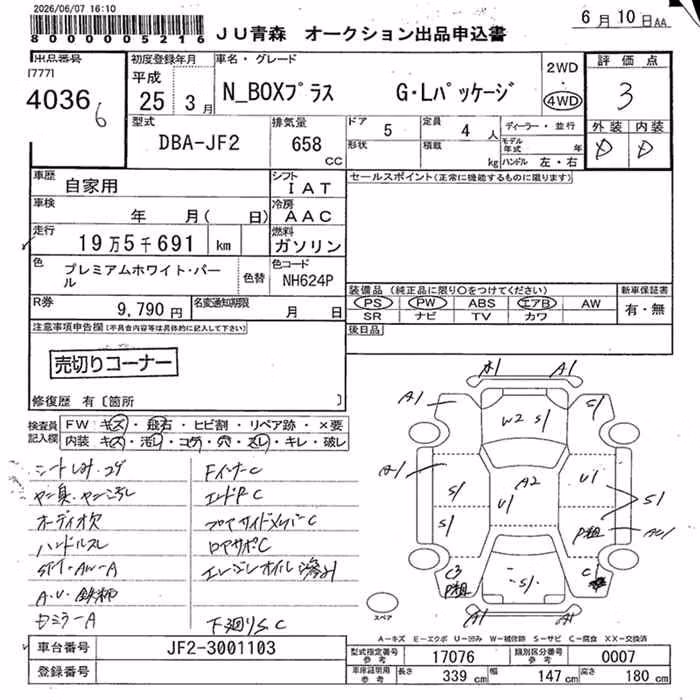 2026/06/07 16:10
800000005216
JU青森 オークション出品申込書
6月10日AA
出品番号
[777]
4036
6
初度登録年月
平成
25 3月
車名・グレード
N_BOXプラス G・Lパッケージ
2WD
・
4WD
評価点
3
外装 内装
D D
型式
DBA-JF2
排気量
658
CC
ドア 5
定員 4 人
形状
積載 kg
ディーラー・並行
モデル年式 年
ハンドル 左・右
車歴
自家用
シフト
IAT
車検
年 月( 日)
冷房
AAC
走行
19万5千691 km
燃料
ガソリン
色
プレミアムホワイト・パール
色替
色コード
NH624P
R券
9,790円
名変通知期限
月 日
セールスポイント(正常に機能するものに限ります)
装備品 (純正品に限り○をつけてください)
PS PW ABS エアB AW
SR ナビ TV カワ
新車保証書
有・無
後日品
注意事項申告欄(不具合内容等は具体的に記入して下さい)
売切りコーナー
修復歴 有〔箇所 〕
検査員
記入欄
FW キズ・飛石・ヒビ割・リペア跡・×要
内装 キズ・汚レ・コゲ・穴・スレ・キレ・破レ
オーディオ欠
ハンドルスレ
FインナーC
エンドPC
ロアサポC
エンジンオイル滲み
下廻りSC
A1 A1
A1
W2 S1
S1
A1
S1
A2
U1
U1
S1
S1
P粗
C3
P粗
S1
C1
A1 A1
スペア
A-キズ E-エクボ U-凹み W-補修跡 S-サビ C-腐食 XX-交換済
車台番号
JF2-3001103
登録番号
型式指定番号
参考
17076
類別区分番号
参考
0007
車庫証明用
参考
長さ 339 cm
幅 147 cm
高さ 180 cm